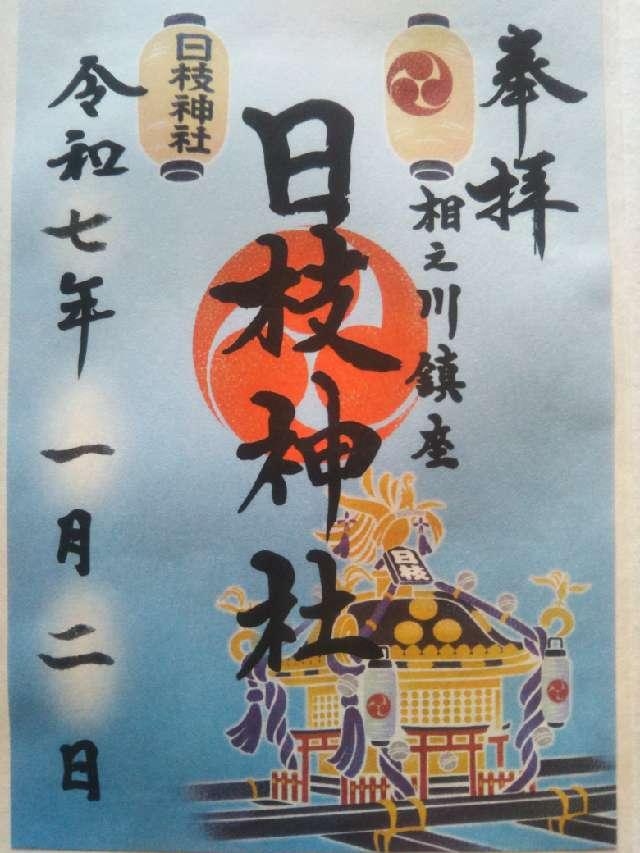 奉拝
日枝神社
相之川鎮座
日枝神社
日枝
令和七年
一月二日